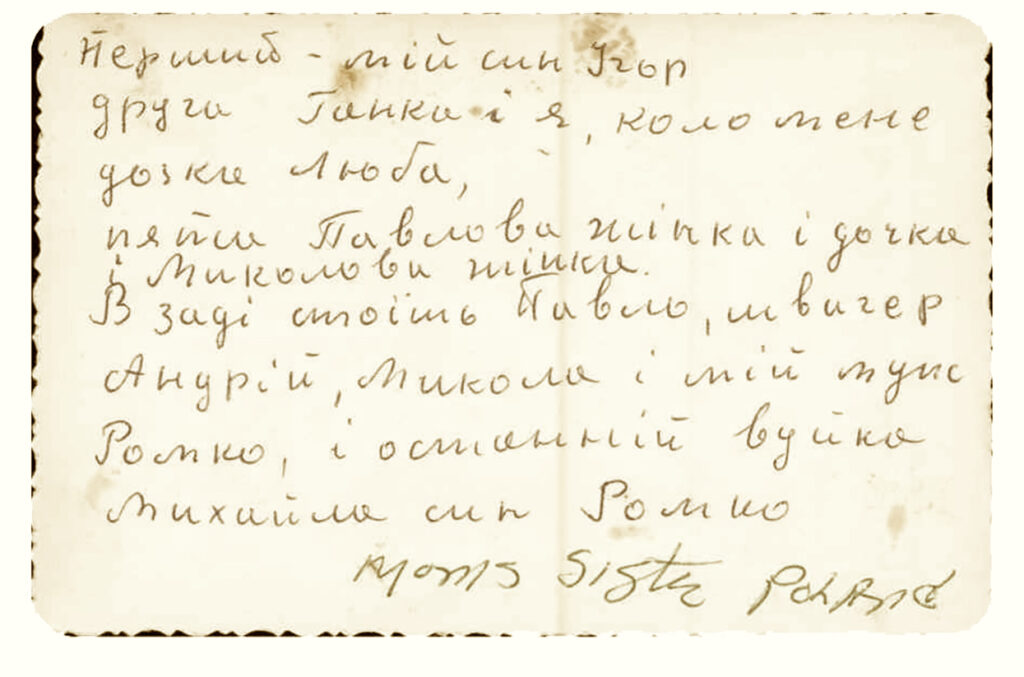 Перший - мій син Ігор
друга Ганка і я, коло мене
дозка Люба,
пята Павлова жінка і дочка
і Миколова жінка.
В заді стоїть Павло, швагер
Андрій, Микола і мій муж
Ромко, і останній вуйка
Михайла син Ромко
Moms Sister Poland